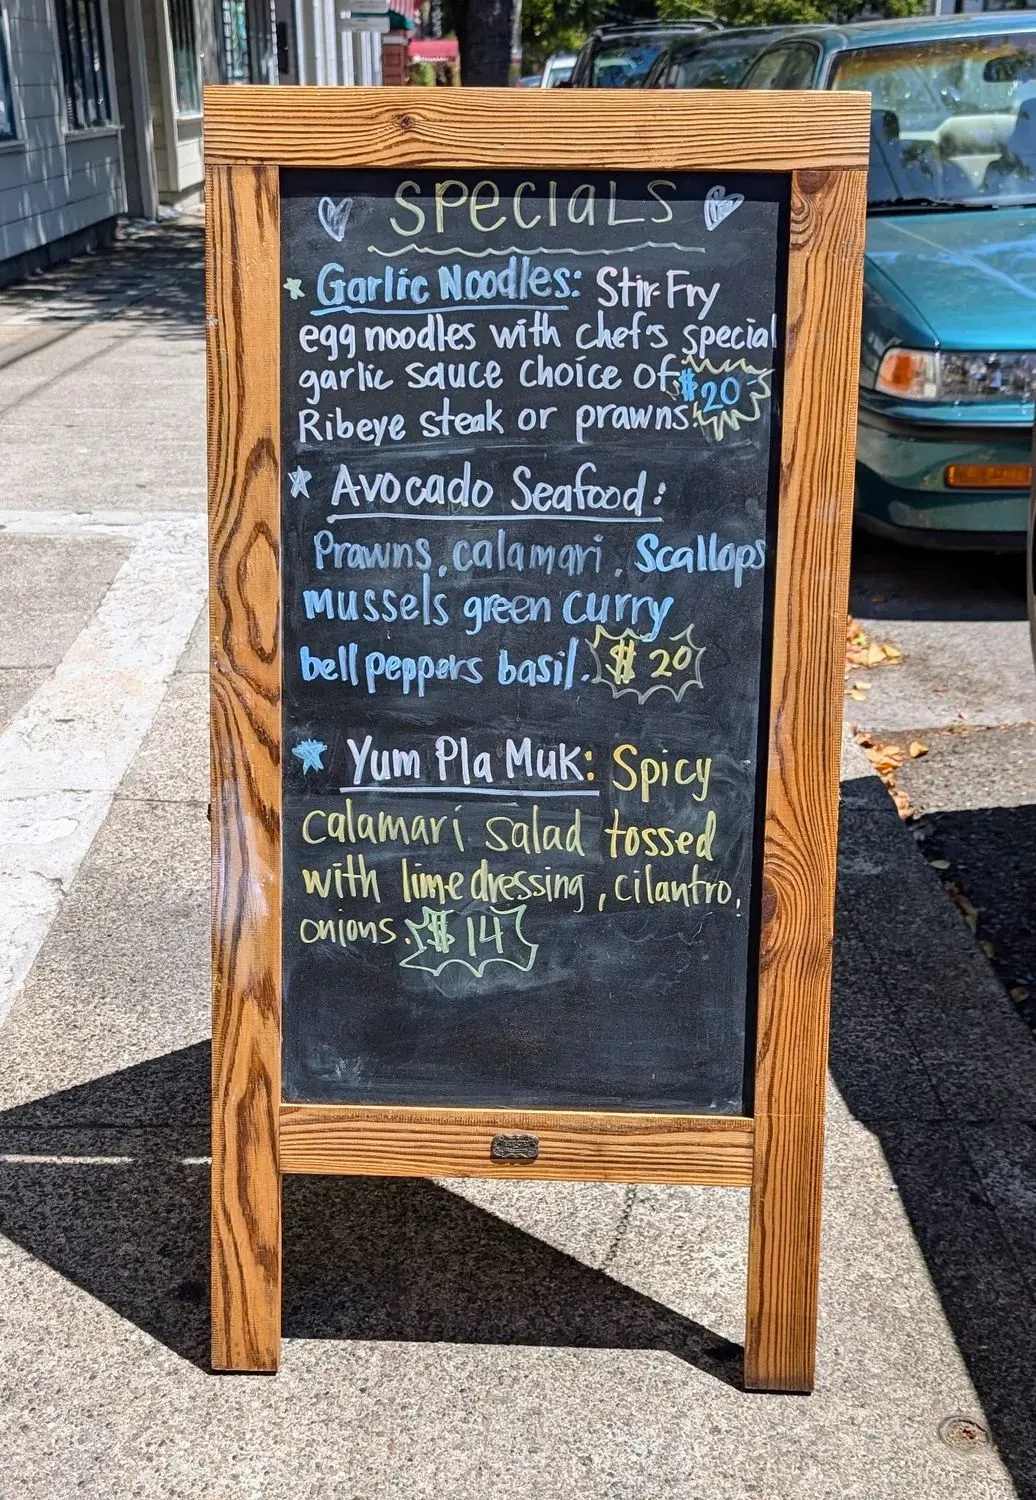 SPeCIaLS
Garlic Noodles: Stir-Fry
egg noodles with chef's special
garlic sauce choice of $20
Ribeye steak or prawns.
Avocado Seafood:
Prawns, calamari, Scallops
mussels green curry
bell peppers basil. $20
Yum Pla Muk: Spicy
calamari salad tossed
with lime dressing, cilantro,
onions. $14